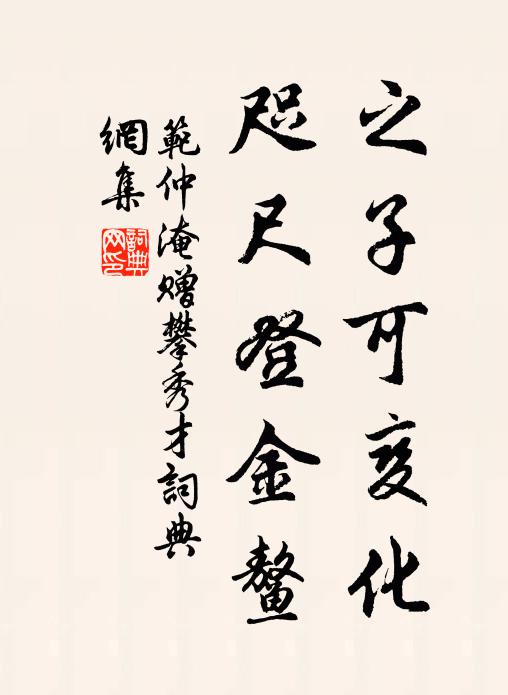 之子可变化
咫尺登金鳌
範仲淹赠攀秀才詞典
網集
詞典
网印